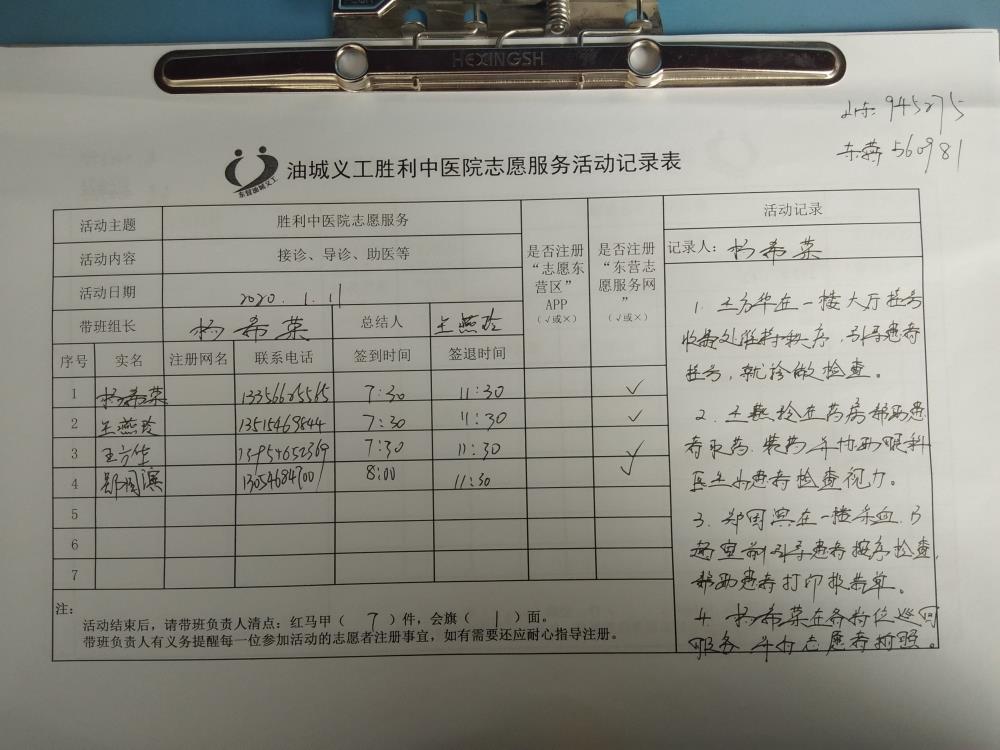 HEXINGSH
山东 945275
东营 560981
东营油城义工
油城义工胜利中医院志愿服务活动记录表
活动主题 胜利中医院志愿服务
活动内容 接诊、导诊、助医等
活动日期 2020.1.11
带班组长 杨希荣 总结人 王燕玲
是否注册“志愿东营区”APP（√或×）
是否注册“东营志愿服务网”（√或×）
序号 实名 注册网名 联系电话 签到时间 签退时间
1 杨希荣 7:30 11:30 √
2 王燕玲 13515469844 7:30 11:30 √
3 王方华 13954652369 7:30 11:30 √
4 郑国滨 13054684700 8:00 11:30 √
5
6
7
注：
活动结束后，请带班负责人清点：红马甲（ 7 ）件，会旗（ 1 ）面。
带班负责人有义务提醒每一位参加活动的志愿者注册事宜，如有需要还应耐心指导注册。
活动记录
记录人：杨希荣
1. 王方华在一楼大厅挂号
收费处维持秩序，引导患者
挂号，就诊做检查。
2. 王燕玲在药房帮助患
者取药、装药并协助眼科
医生为患者检查视力。
3. 郑国滨在一楼采血、B
超室前引导患者按序检查，
帮助患者打印报告单。
4 杨希荣在各岗位巡回
服务并为志愿者拍照。